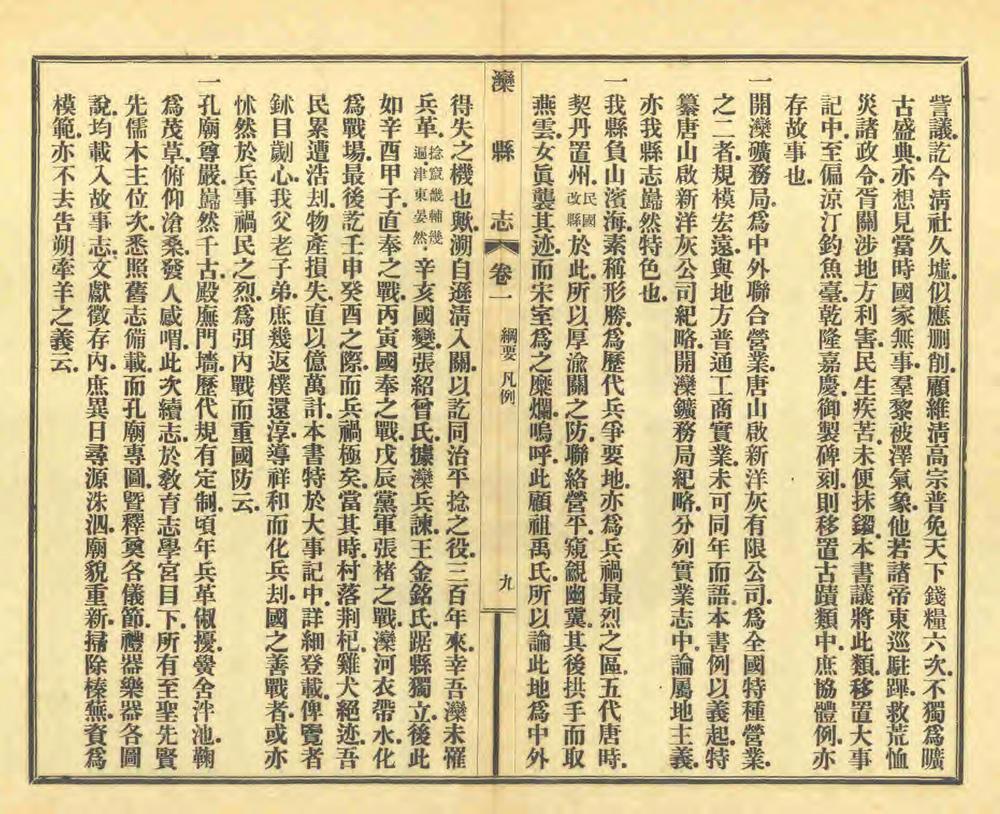 訾議.訖今淸社久墟.似應删削.顧維淸高宗普免天下錢糧六次.不獨爲曠
古盛典.亦想見當時國家無事.羣黎被澤氣象.他若諸帝東巡駐蹕.救荒恤
災諸政令.胥關涉地方利害.民生疾苦.未便抹鎩.本書議將此類.移置大事
記中.至偏涼汀釣魚臺.乾隆嘉慶.御製碑刻.則移置古蹟類中.庶協體例.亦
存故事也.
一開灤礦務局.爲中外聯合營業.唐山啟新洋灰有限公司.爲全國特種營業.
之二者.規模宏遠.與地方普通工商實業.未可同年而語.本書例以義起.特
纂唐山啟新洋灰公司紀略.開灤鑛務局紀略.分列實業志中.論屬地主義.
亦我縣志巋然特色也.
一我縣負山濱海.素稱形勝.爲歷代兵爭要地.亦爲兵禍最烈之區.五代唐時.
契丹置州.民國改縣.於此.所以厚渝關之防.聯絡營平.窺覦幽冀.其後拱手而取
燕雲.女眞襲其迹.而宋室爲之糜爛.嗚呼.此顧祖禹氏.所以論此地爲中外
灤縣志 卷一 綱要 凡例 九
得失之機也歟.溯自遜淸入關.以訖同治平捻之役.三百年來.幸吾灤未罹
兵革.捻竄畿輔幾遍津東晏然.辛亥國變.張紹曾氏.據灤兵諫.王金銘氏.踞縣獨立.後此
如辛酉甲子.直奉之戰.丙寅國奉之戰.戊辰黨軍張褚之戰.灤河衣帶水.化
爲戰場.最後訖壬申癸酉之際.而兵禍極矣.當其時.村落荆杞.雞犬絕迹.吾
民累遭浩刦.物產損失.直以億萬計.本書特於大事記中.詳細登載.俾覽者
鉥目劌心.我父老子弟.庶幾返樸還淳.導祥和而化兵刦.國之善戰者.或亦
怵然於兵事禍民之烈.爲弭內戰而重國防云.
一孔廟尊嚴.巋然千古.殿廡門墻.歷代規有定制.頃年兵革俶擾.黌舍泮池.鞠
爲茂草.俯仰滄桑.發人感喟.此次續志.於敎育志學宮目下.所有至聖先賢
先儒木主位次.悉照舊志備載.而孔廟專圖.曁釋奠各儀節.禮器樂器各圖
說.均載入故事志.文獻徵存內.庶異日尋源洙泗.廟貌重新.掃除榛蕪.資爲
模範.亦不去告朔牽羊之義云.